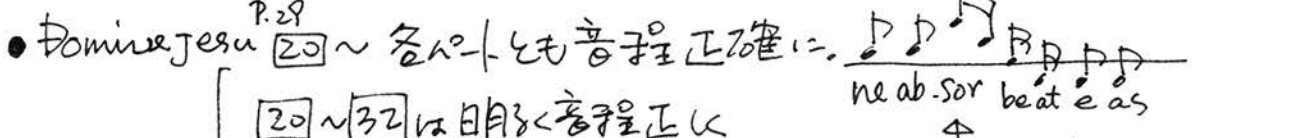 P.29
• Domine Jesu 20〜 各パートとも音程正確に.
ne ab-sor beat e as
20〜32は明るく音程正しく